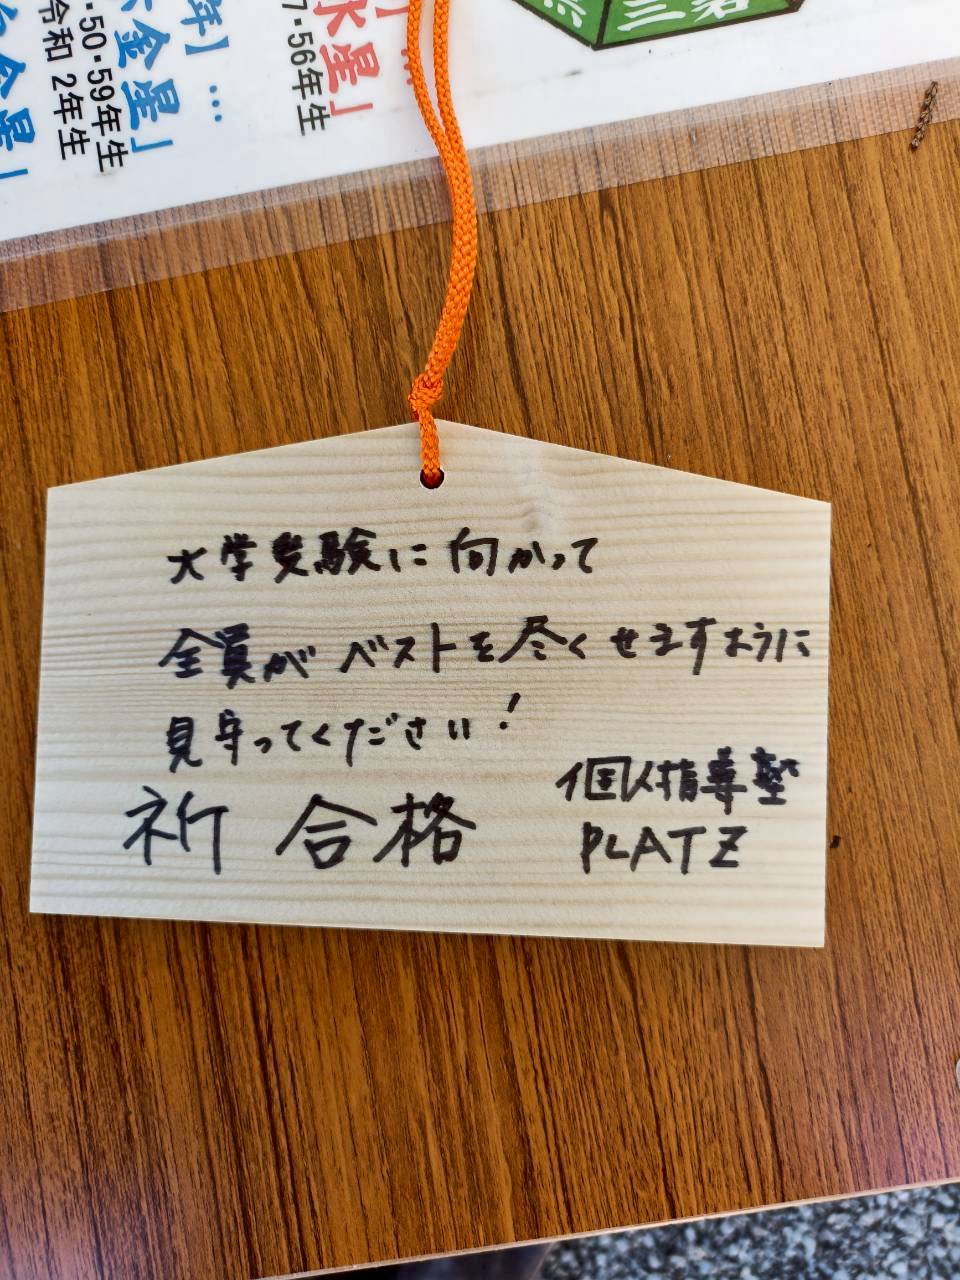 年】…
金星」
50・59年生
令和 2年生
水星」
7・56年生
大学受験に向かって
全員がベストを尽くせますように
見守ってください!
祈 合格
個人指導塾
PLATZ